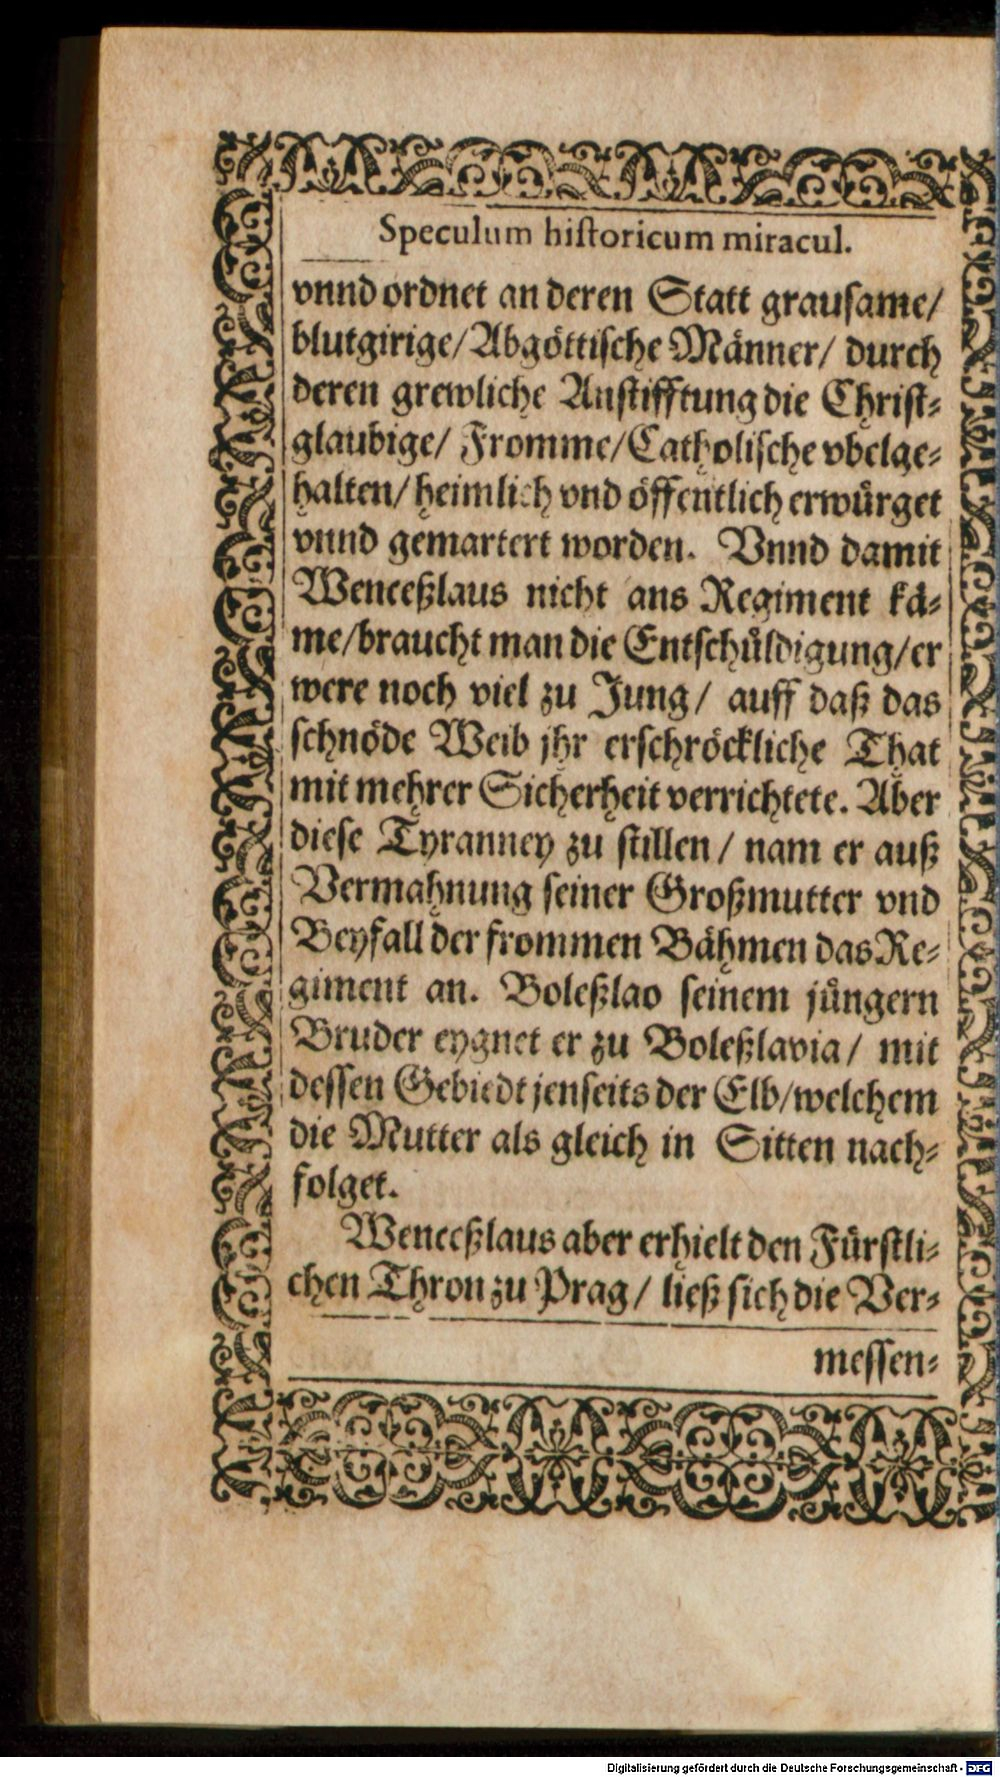 Speculum historicum miracul.
vnnd ordnet an deren Statt grausame/
blutgirige/Abgöttische Männer/ durch
deren grewliche Anstifftung die Christ-
glaubige/ Fromme/Catholische vbelge-
halten/heimlich vnd öffentlich erwürget
vnnd gemartert worden. Vnnd damit
Wenceßlaus nicht ans Regiment kä-
me/braucht man die Entschüldigung/er
were noch viel zu Jung/ auff daß das
schnöde Weib jhr erschröckliche That
mit mehrer Sicherheit verrichtete. Aber
diese Tyranney zu stillen/ nam er auß
Vermahnung seiner Großmutter vnd
Beyfall der frommen Bähmen das Re-
giment an. Boleßlao seinem jüngern
Bruder eygnet er zu Boleßlavia/ mit
dessen Gebiedt jenseits der Elb/welchem
die Mutter als gleich in Sitten nach-
folget.
Wenceßlaus aber erhielt den Fürstli-
chen Thron zu Prag/ ließ sich die Ver-
messen-
Digitalisierung gefördert durch die Deutsche Forschungsgemeinschaft - DFG